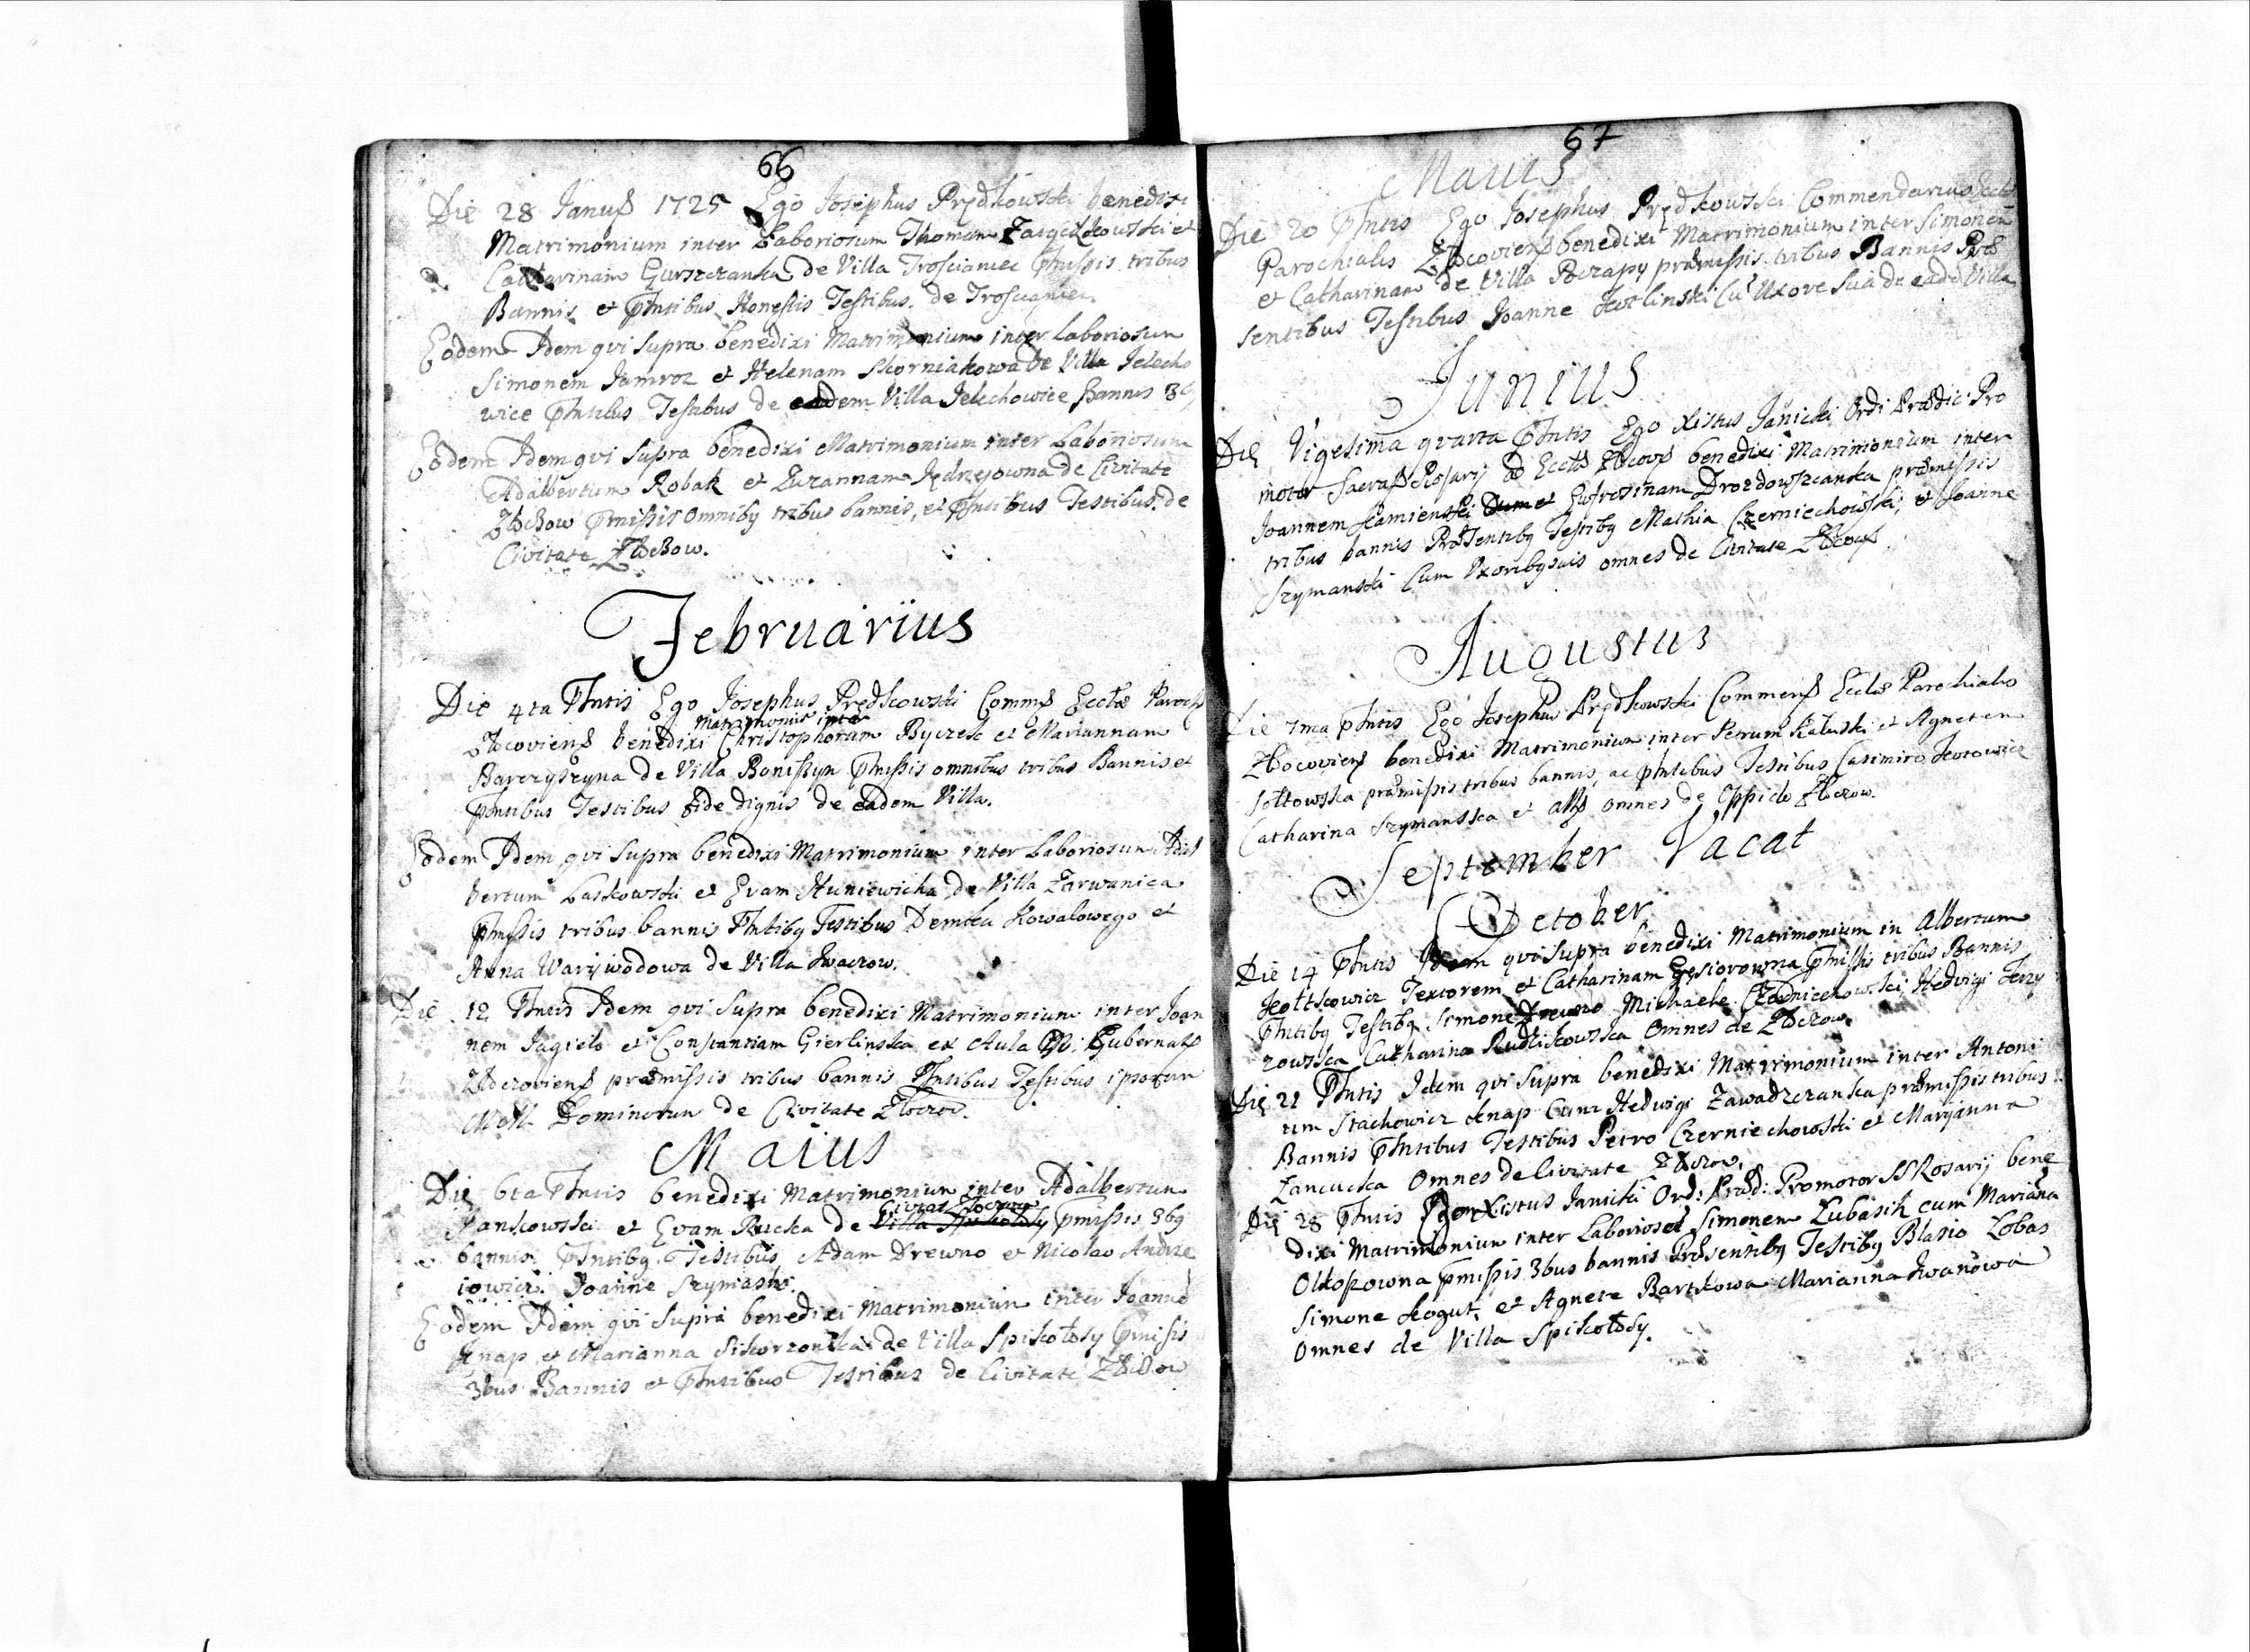 66
Die 28 Januß 1725 Ego Josephus Prędkowski benedixi
Matrimonium inter Laboriosum Thomam et
Catharinam de Villa Trosciamec Pmissis tribus
Bannis et Pntibus Honestis Testibus de Trosciamec
Eodem Idem qvi supra benedixi Matrimonium inter Laboriosum
Simonem Jamroz et Helenam Skorniakowa de Villa Jelecho
wice Pntibus Testibus de eadem Villa Jelechowice Bannis
Eodem Idem qvi supra benedixi Matrimonium inter Laboriosum
Adalbertum Robak et Zuzannam Jędrzejowna de Civitate
Złoczow Pmissis Omnibq tribus bannis, et Pntibus Testibus de
Civitate Złoczow.
Februariius
Die 4ta Pntis Ego Josephus Prędkowski Commß Eccłæ Parochß
Matrimoniū inter
Złocoviensß benedixi Christophorum Byczek et Mariannam
Barczyszyna de Villa Boniszyn Pmissis omnibus tribus Bannis et
Pntibus Testibus fide dignis de eadem Villa.
Eodem Idem qvi supra benedixi Matrimonium inter Laboriosum Adal
bertum Laskowski et Evam Huniewicka de Villa Zarwanica
Pmissis tribus bannis Pntibq Testibus Demka Kowalowego et
Anna Warijwodowa de Villa Zwaczow.
Die 12 Pntis Idem qvi supra benedixi Matrimonium inter Joan
nem Jagieło et Constantiam Gierlinska ex Aula Gubernatß
Złoczoviensß præmissis tribus bannis Pntibus Testibus ipsorum
Dominorum de Civitate Złoczow.
Maius
Die 6ta Pntis benedixi Matrimonium inter Adalbertum
Civitas Złoczow
Jankowski et Evam Rucka de Villa Spikołosy pmissis 3bq
bannis Pntibq Testibus Adam Drewno et Nicolao Andrze
iowicz. Joanne Szymaski.
Eodem Idem qvi supra benedixi Matrimonium inter Joannē
Knap et Marianna Sikorzonka de Villa Spikołosy Pmissis
3bus Bannis et Pntibus Testibus de Civitate Złoczow
67
Maius
Die 20 Pntis Ego Josephus Prędkowski Commendarius Eccłæ
Parochialis Złocoviensß benedixi Matrimonium inter Simonem
et Catharinam de Villa Poczapy præmissis tribus Bannis Præ
sentibus Testibus Joanne Kotlinski Cū Uxore Sua de eadē Villa
Junius
Die Vigesima qvarta Pntis Ego Xistus Janicki Ordi: Prædic: Pro
motor Sacraß Rosarij ad Eccłæ Złocovß benedixi Matrimonium inter
Joannem Kamienski et Eufrozinam Drozdowszcanka præmissis
tribus bannis Præsentibq Testibq Mathia Czerniechowski, et Joanne
Szymanski Cum Uxoribq suis omnes de Civitate Złocovß
Augustus
Die 7ma Pntis Ego Josephus Prędkowski Commenß Eccłæ Parochialis
Złocoviensß benedixi Matrimonium inter Petrum Kałuski et Agnetem
Sołtowska præmissis tribus bannis, ac Pntibus Testibus Casimiro Kotowicz
Catharina Szymanska et alijs omnes de Oppido Złoczow.
September Vacat
October
Die 14 Pntis Idem qvi supra benedixi Matrimonium in Albertum
Kołtkowicz Textorem et Catharinam Gęsiorowna Pmissis tribus Bannis
Pntibq Testibq Simone Drewno Michaele Hedvigi Jerzy
rowska Catharina Rudlikowska Omnes de Złoczow.
Die 21 Pntis Idem qvi supra benedixi Matrimonium inter Antoni
um Stachowicz Knap Cum Hedwigi Zawadzczanka præmissis tribus
Bannis Pntibus Testibus Petro Czerniechowski et Maryanna
Zancucka Omnes de Civitate Złoczow.
Die 28 Pntis Idem Xistus Janicki Ord: Præd: Promotor SS Rosarij bene
dixi Matrimonium inter Laborioset Simonem Lubasik cum Mariana
Olkopowna pmissis 3bus bannis Præsentibq Testibq Blasio Lobas
Simone Kogut, et Agnete Bartkowa Marianna Iwanowa
Omnes de Villa Spikołosy.